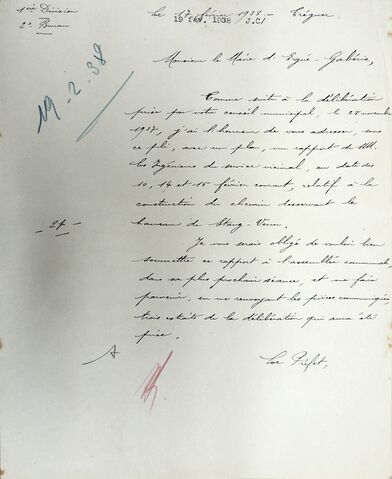 1ère Division
2e Bureau
Le 17 février 1938 - Tréguer.
19 fév. 1938 J.C/
19-2-38
Monsieur le Maire d'Ergué-Gabéric,
Comme suite à la délibération
prise par votre conseil municipal, le 28 novembre
1937, j'ai l'honneur de vous adresser, sous
ce pli, avec un plan, un rapport de MM.
les Ingénieurs du service vicinal, en date des
10, 14 et 15 février courant, relatif à la
construction du chemin desservant le
hameau de Stang-Venn.
Je vous serais obligé de vouloir bien
soumettre ce rapport à l'assemblée communale
dans sa plus prochain séance, et me faire
parvenir, en me renvoyant les pièces communiquées,
trois extraits de la délibération qui aura été
prise.
Le Préfet,